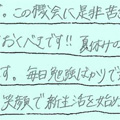 。この機会に是非苦
おくべきです!! 夏休みの
す。毎日勉強ばかりで
笑顔で新生活を始め